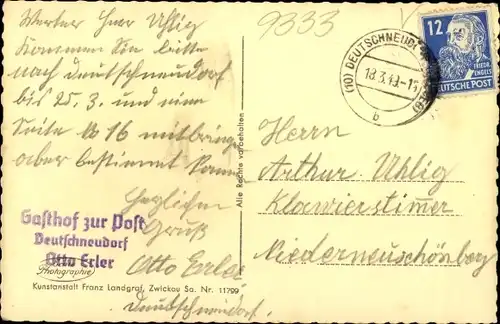 Werter Herr Uhlig
Kommen Sie bitte
nach Deutschneudorf
bis 25.3. und eine
Seite 16 mitbringen
aber bestimmt
Herzlichen
Gruß
Otto Erler
Deutschneudorf.
Gasthof zur Post
Deutschneudorf
Otto Erler
Photographie
Kunstanstalt Franz Landgraf, Zwickau Sa. Nr. 11799
Alle Rechte vorbehalten
9333
(10) DEUTSCHNEUDORF
18.3.49-15
b
12
FRIEDR. ENGELS
DEUTSCHE POST
Herrn
Arthur Uhlig
Klawierstimmer
Niederneuschönberg